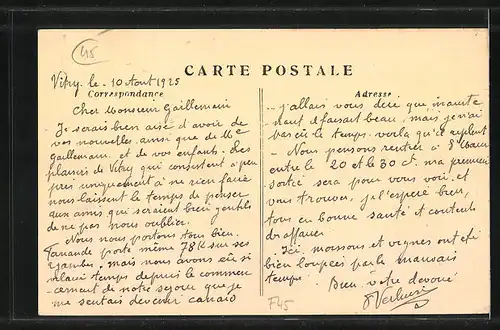 45
Vitry le 10 Aout 1925
CARTE POSTALE
Correspondance
Adresse
Cher Monsieur Gaillemain
Je serais bien aise d'avoir de
vos nouvelles ainsi que de Me
Gaillemain, et de vos enfants. Les
plaisirs de Vitry qui consistent a peu
pres uniquement à ne rien faire
nous laissent le temps de penser
aux amis qui seraient bien gentils
de ne pas nous oublier.
Nous nous portons tous bien.
porte même 78K sur ses
jambes. mais nous avons eu si
mauvais temps depuis le commen-
cement de notre sejour que je
me sentais devenir canard
-- j'allais vous dire que
il faisait beau, mais je n'ai
pas eu le temps. voila qu'il repleut
- Nous pensons rentrer à
entre le 20 et le 30 ct. ma premiere
sortie sera pour vous voir, et
vous trouver, je l'espère bien,
tous en bonne santé et contents
d'affaires
Ici, moissons et vignes ont été
bien loupées par le mauvais
temps.
Bien votre devoué
F45